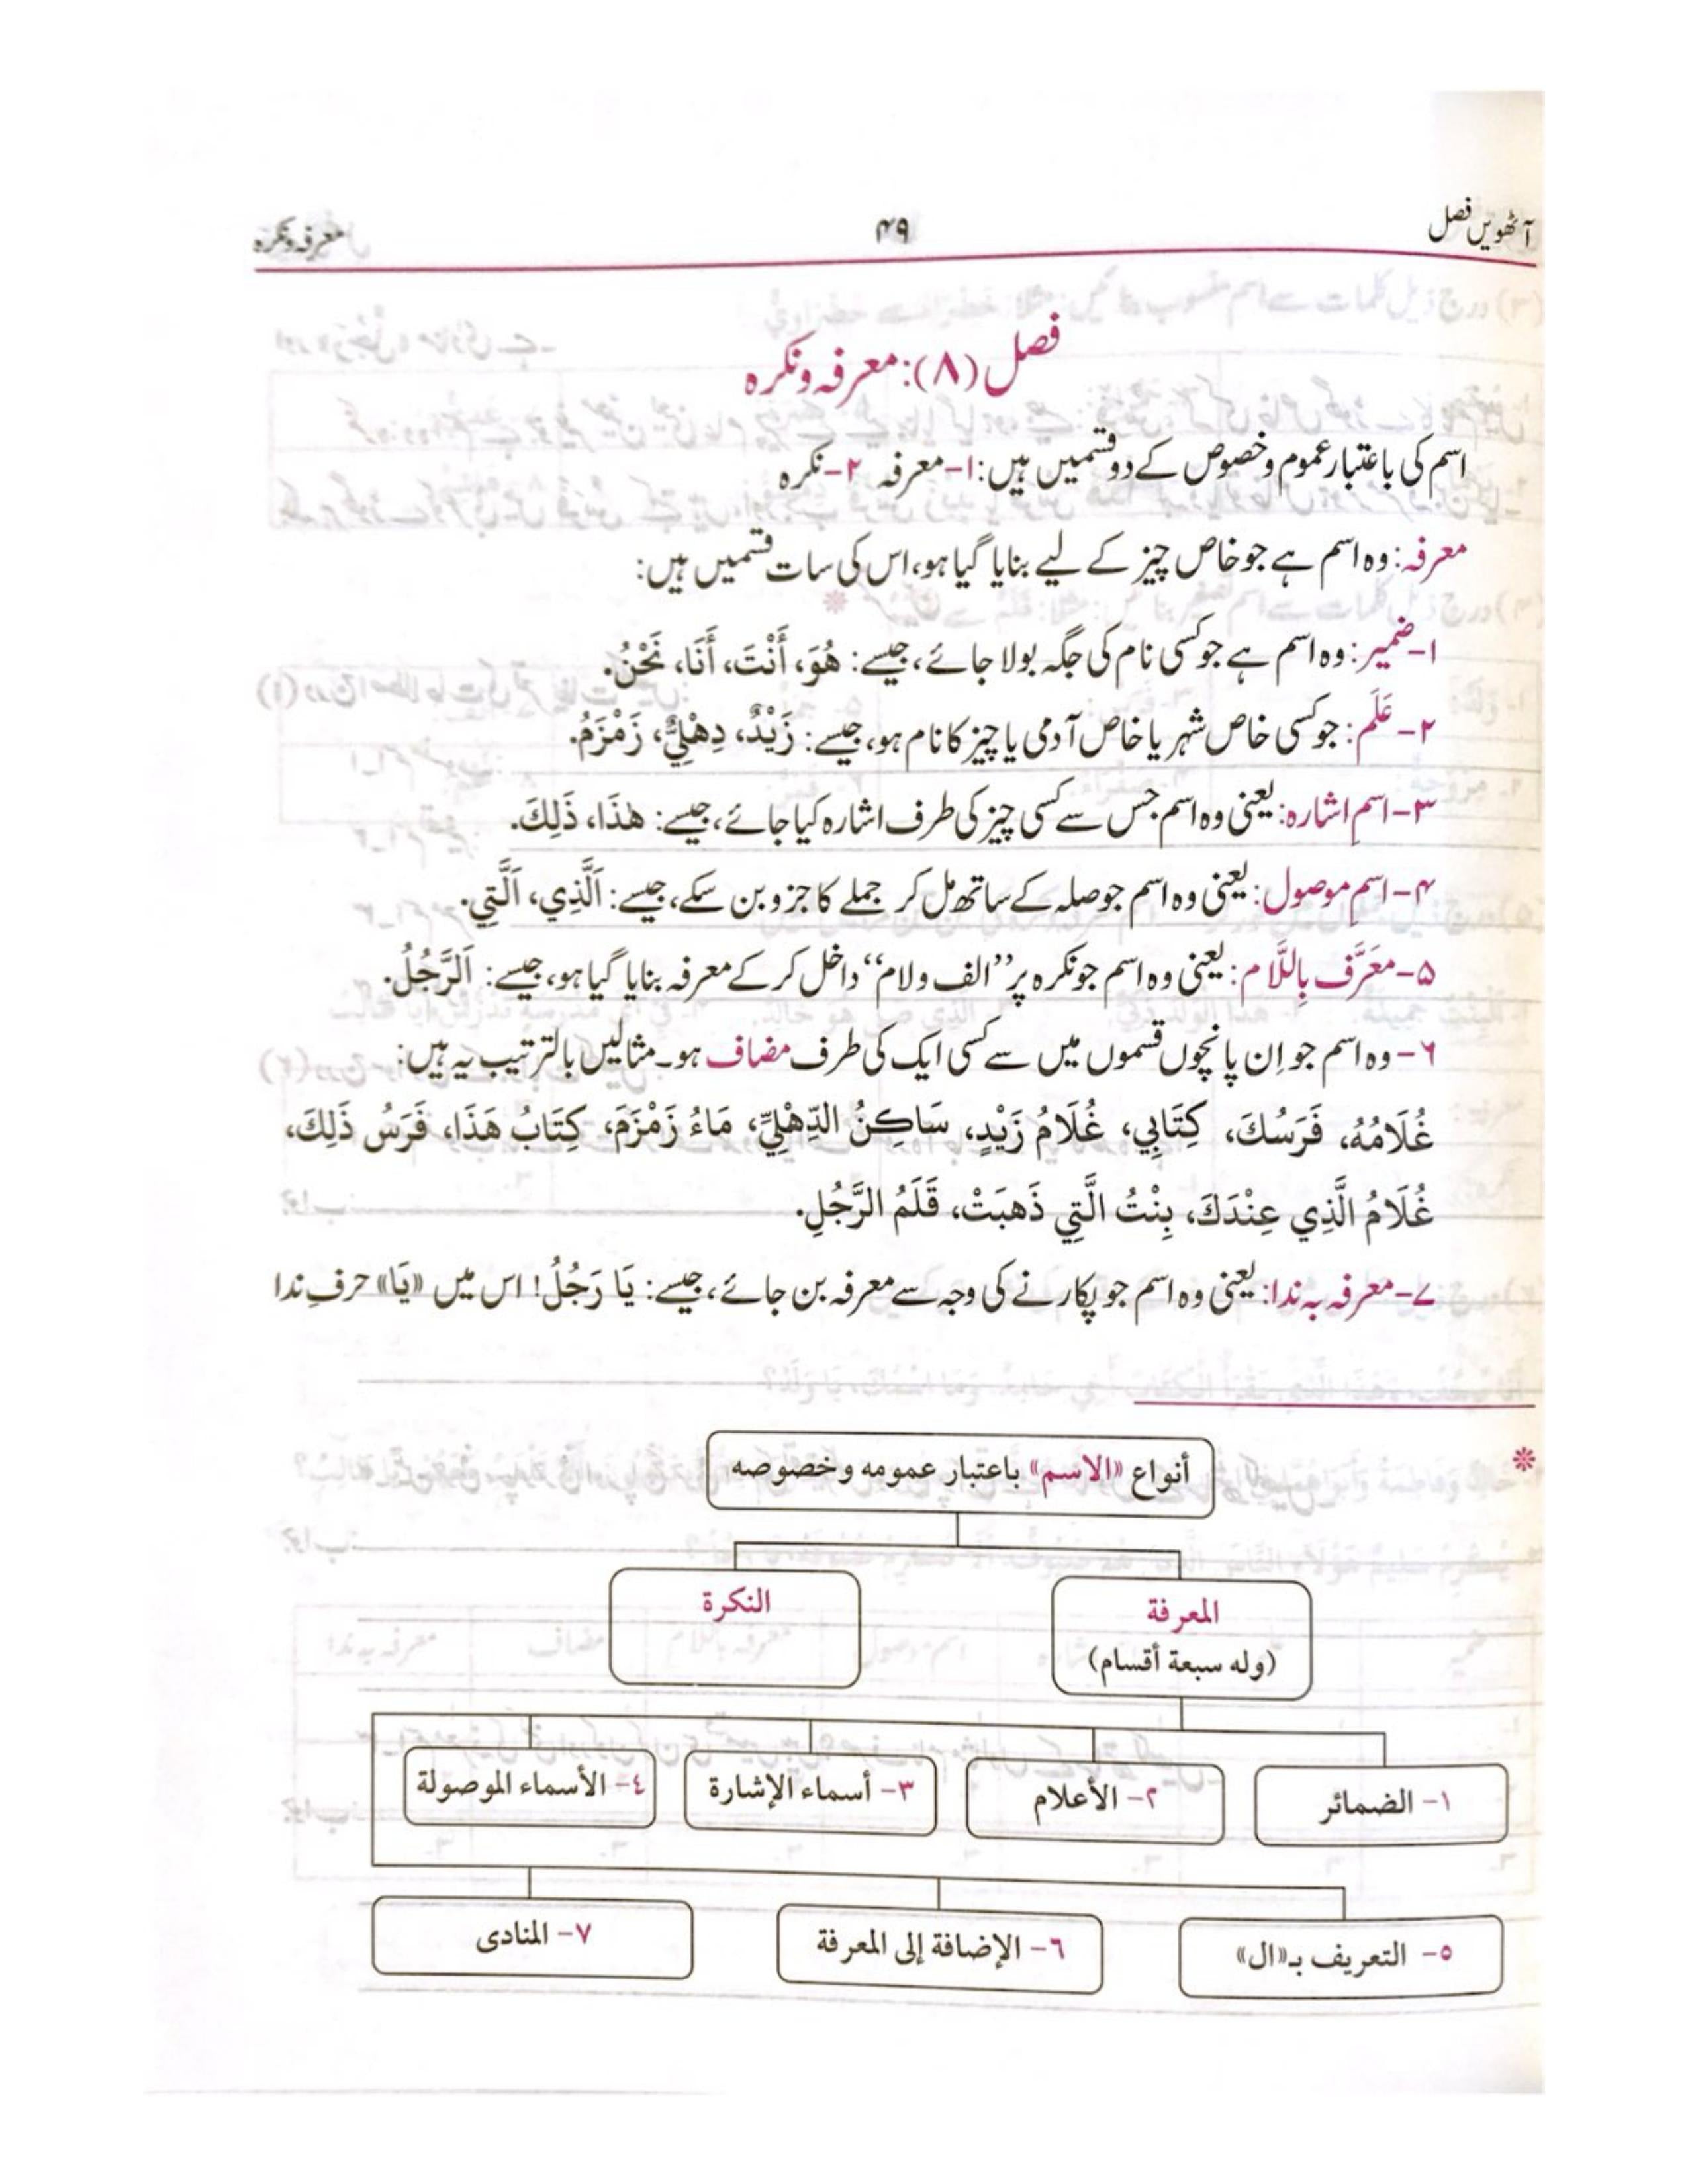 آٹھویں فصل
۴۹
معرفہ ونکرہ
فصل (۸): معرفہ ونکرہ
اسم کی باعتبار عموم وخصوص کے دو قسمیں ہیں: ۱- معرفہ ۲- نکرہ
معرفہ: وہ اسم ہے جو خاص چیز کے لیے بنایا گیا ہو، اس کی سات قسمیں ہیں: *
۱- ضمیر: وہ اسم ہے جو کسی نام کی جگہ بولا جائے، جیسے: هُوَ، أَنْتَ، أَنَا، نَحْنُ.
۲- عَلَم: جو کسی خاص شہر یا خاص آدمی یا چیز کا نام ہو، جیسے: زَيْدٌ، دِهْلِيُّ، زَمْزَمُ.
۳- اسمِ اشارہ: یعنی وہ اسم جس سے کسی چیز کی طرف اشارہ کیا جائے، جیسے: هٰذَا، ذَلِكَ.
۴- اسمِ موصول: یعنی وہ اسم جو صلہ کے ساتھ مل کر جملے کا جزو بن سکے، جیسے: اَلَّذِي، اَلَّتِي.
۵- مَعَرَّف بِاللَّام: یعنی وہ اسم جو نکرہ پر ”الف ولام“ داخل کر کے معرفہ بنایا گیا ہو، جیسے: اَلرَّجُلُ.
۶- وہ اسم جو اِن پانچوں قسموں میں سے کسی ایک کی طرف مضاف ہو۔ مثالیں بالترتیب یہ ہیں:
غُلَامُهُ، فَرَسُكَ، كِتَابِي، غُلَامُ زَيْدٍ، سَاكِنُ الدِّهْلِيِّ، مَاءُ زَمْزَمَ، كِتَابُ هَذَا، فَرَسُ ذَلِكَ،
غُلَامُ الَّذِي عِنْدَكَ، بِنْتُ الَّتِي ذَهَبَتْ، قَلَمُ الرَّجُلِ.
۷- معرفہ بہ ندا: یعنی وہ اسم جو پکارنے کی وجہ سے معرفہ بن جائے، جیسے: يَا رَجُلُ! اس میں «يَا» حرفِ ندا
*
أنواع «الاسم» باعتبار عمومه وخصوصه
المعرفة
(وله سبعة أقسام)
النكرة
١- الضمائر
٢- الأعلام
٣- أسماء الإشارة
٤- الأسماء الموصولة
٥- التعريف بـ«ال»
٦- الإضافة إلى المعرفة
٧- المنادى